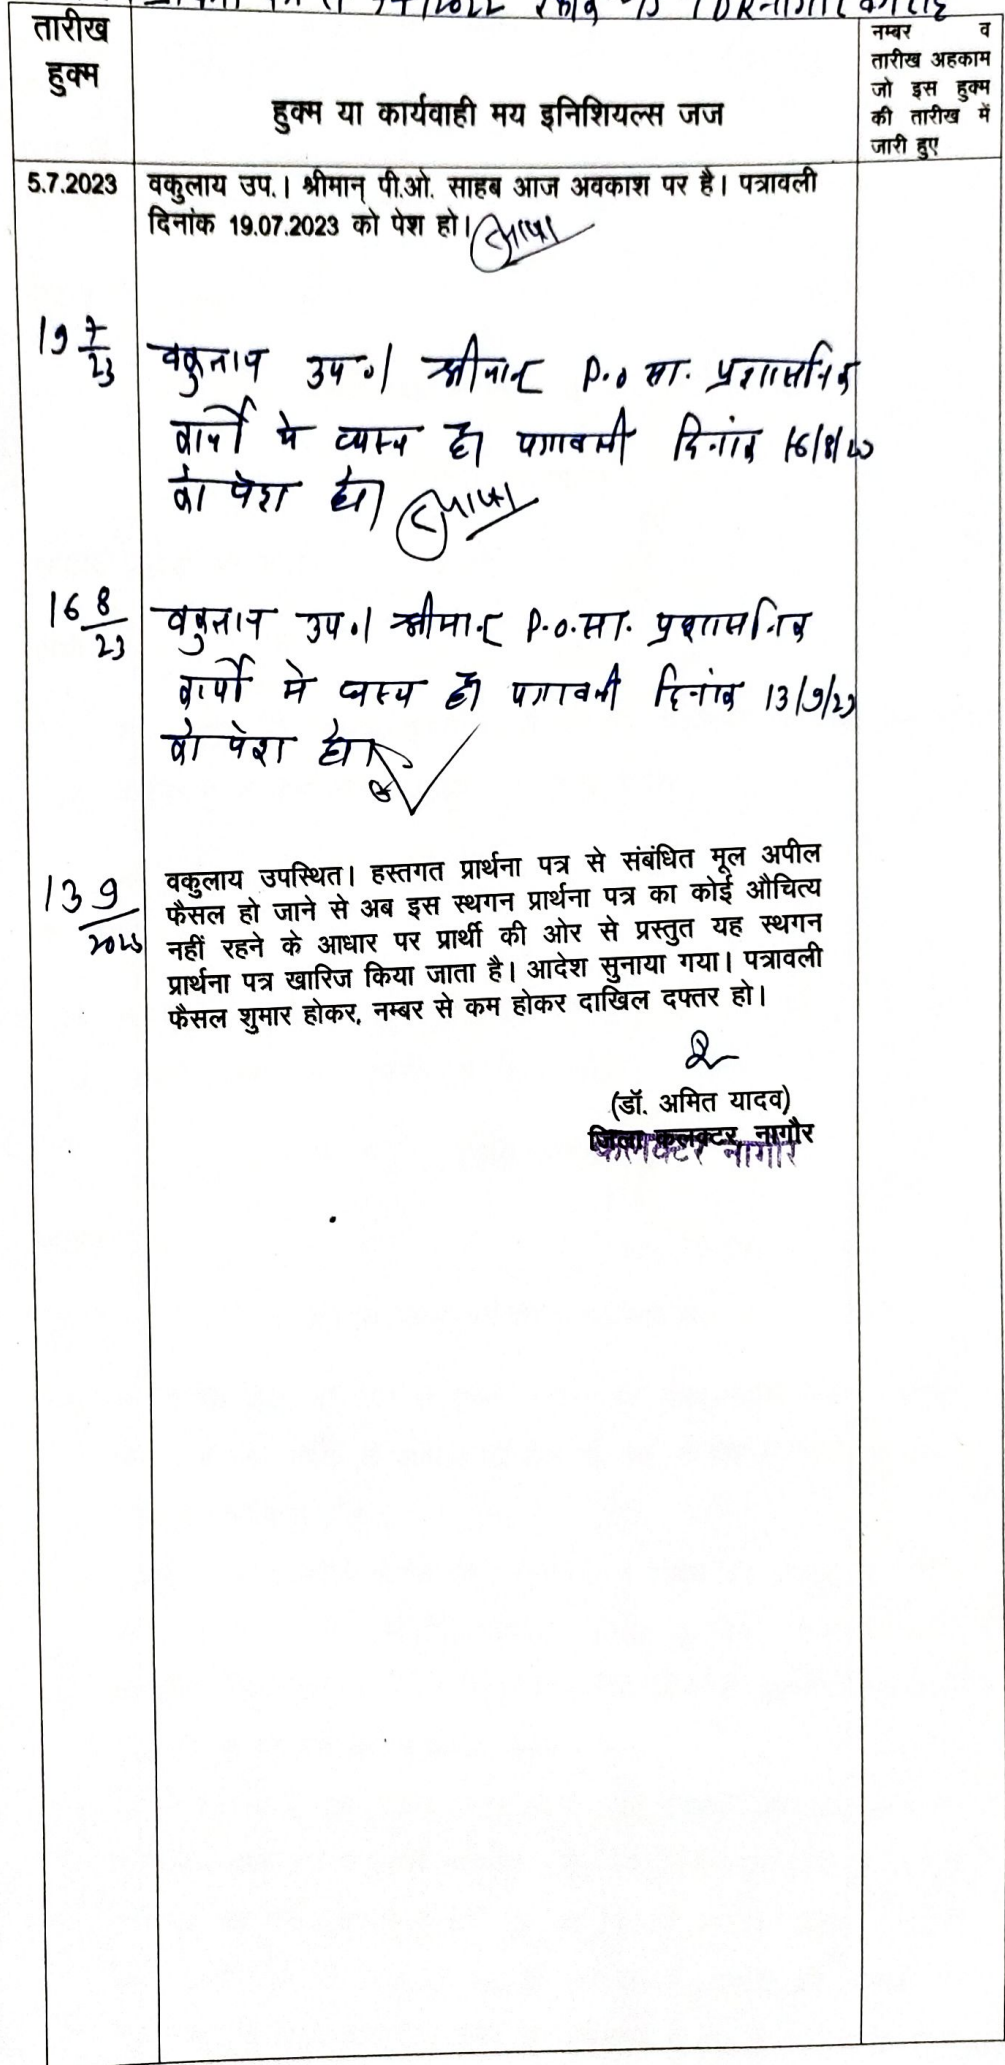 तारीख
हुक्म
हुक्म या कार्यवाही मय इनिशियल्स जज
नम्बर व
तारीख अहकाम
जो इस हुक्म
की तारीख में
जारी हुए
5.7.2023 वकुलाय उप.। श्रीमान् पी.ओ. साहब आज अवकाश पर है। पत्रावली
दिनांक 19.07.2023 को पेश हो।
19 7/23 वकुलाय उप०। श्रीमान P.o सा. प्रशासनिक
कार्यो मे व्यस्थ है। पत्रावली दिनांक 16/8/23
को पेश हो।
16 8/23 वकुलाय उप०। श्रीमान P.o. सा. प्रशासनिक
कार्यो मे व्यस्थ है। पत्रावली दिनांक 13/9/23
को पेश हो।
13 9/2023 वकुलाय उपस्थित। हस्तगत प्रार्थना पत्र से संबंधित मूल अपील
फैसल हो जाने से अब इस स्थगन प्रार्थना पत्र का कोई औचित्य
नहीं रहने के आधार पर प्रार्थी की ओर से प्रस्तुत यह स्थगन
प्रार्थना पत्र खारिज किया जाता है। आदेश सुनाया गया। पत्रावली
फैसल शुमार होकर, नम्बर से कम होकर दाखिल दफ्तर हो।
(डॉ. अमित यादव)
जिला कलक्टर, नागौर
कलक्टर नागौर